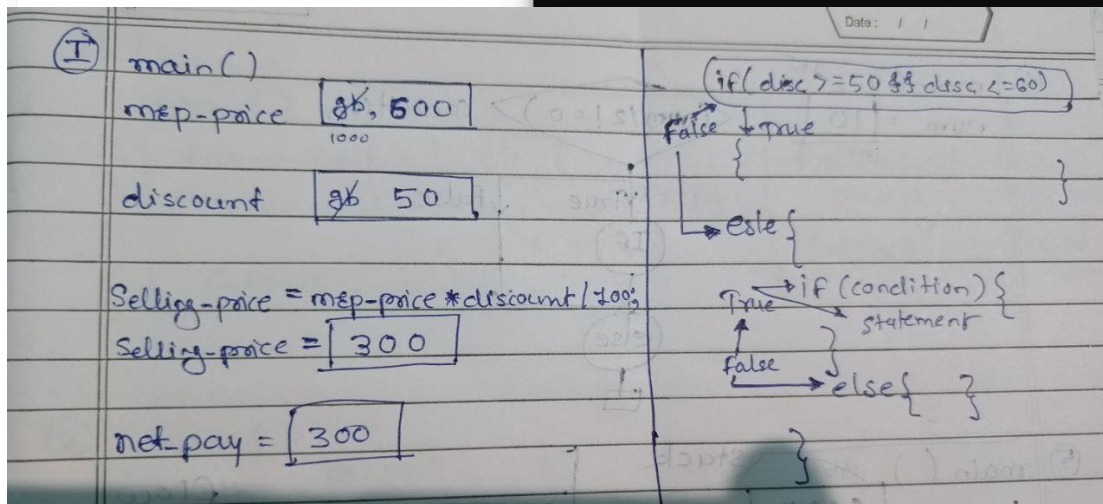 Date: / /
I main()
mrp-price gb, 600
1000
discount gb 50
Selling-price = mrp-price * discount / 100;
Selling-price = 300
net-pay = 300
(if(disc >= 50 && disc <= 60)
false True
{
}
esle {
if (condition) {
True statement
}
false
else { }
}